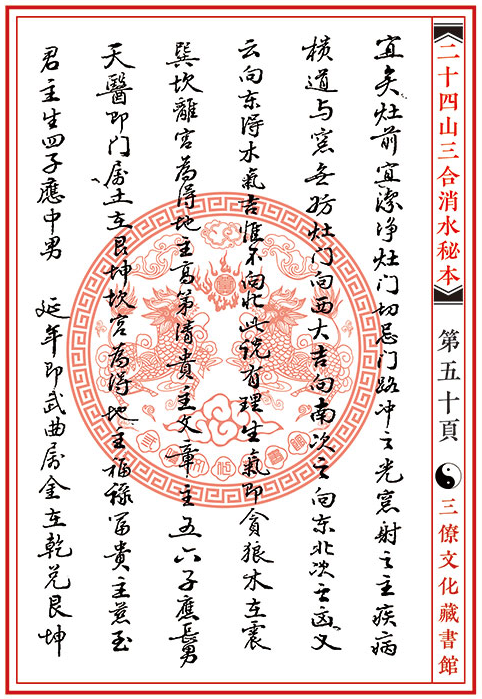 二十四山三合消水秘本
第五十頁
三僚文化藏書館
宜矣灶前宜潔净灶门切忌门路冲之光窓射之主疾病
横道与窓無妨灶门向西大吉向南次之向东北次之凶又
云向东得木氣吉惟不向北此说有理生氣即贪狼木在震
巽坎離宫為得地主高第清貴主文章主五六子應長男
天醫即门属土在艮坤坎宫為得地主福祿富貴主慈玉
君主生四子應中男 延年即武曲属金在乾兑艮坤